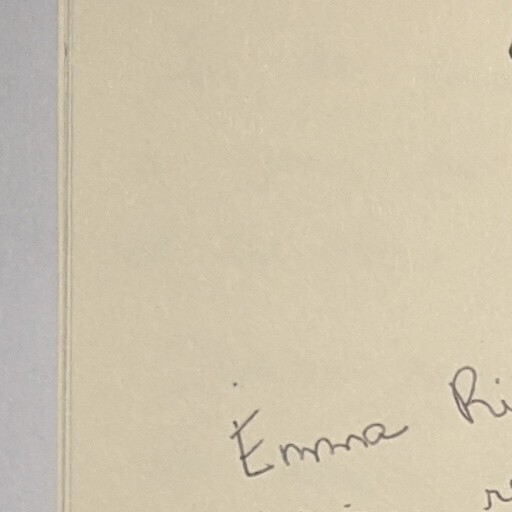 Emma Ri